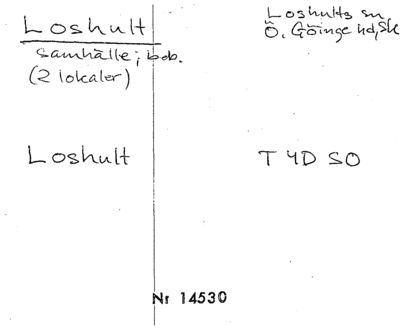 Loshult
samhälle; bob.
(2 lokaler)
Loshults sn
Ö. Göinge hd, Sk
Loshult
T 4D SO
Nr 14530